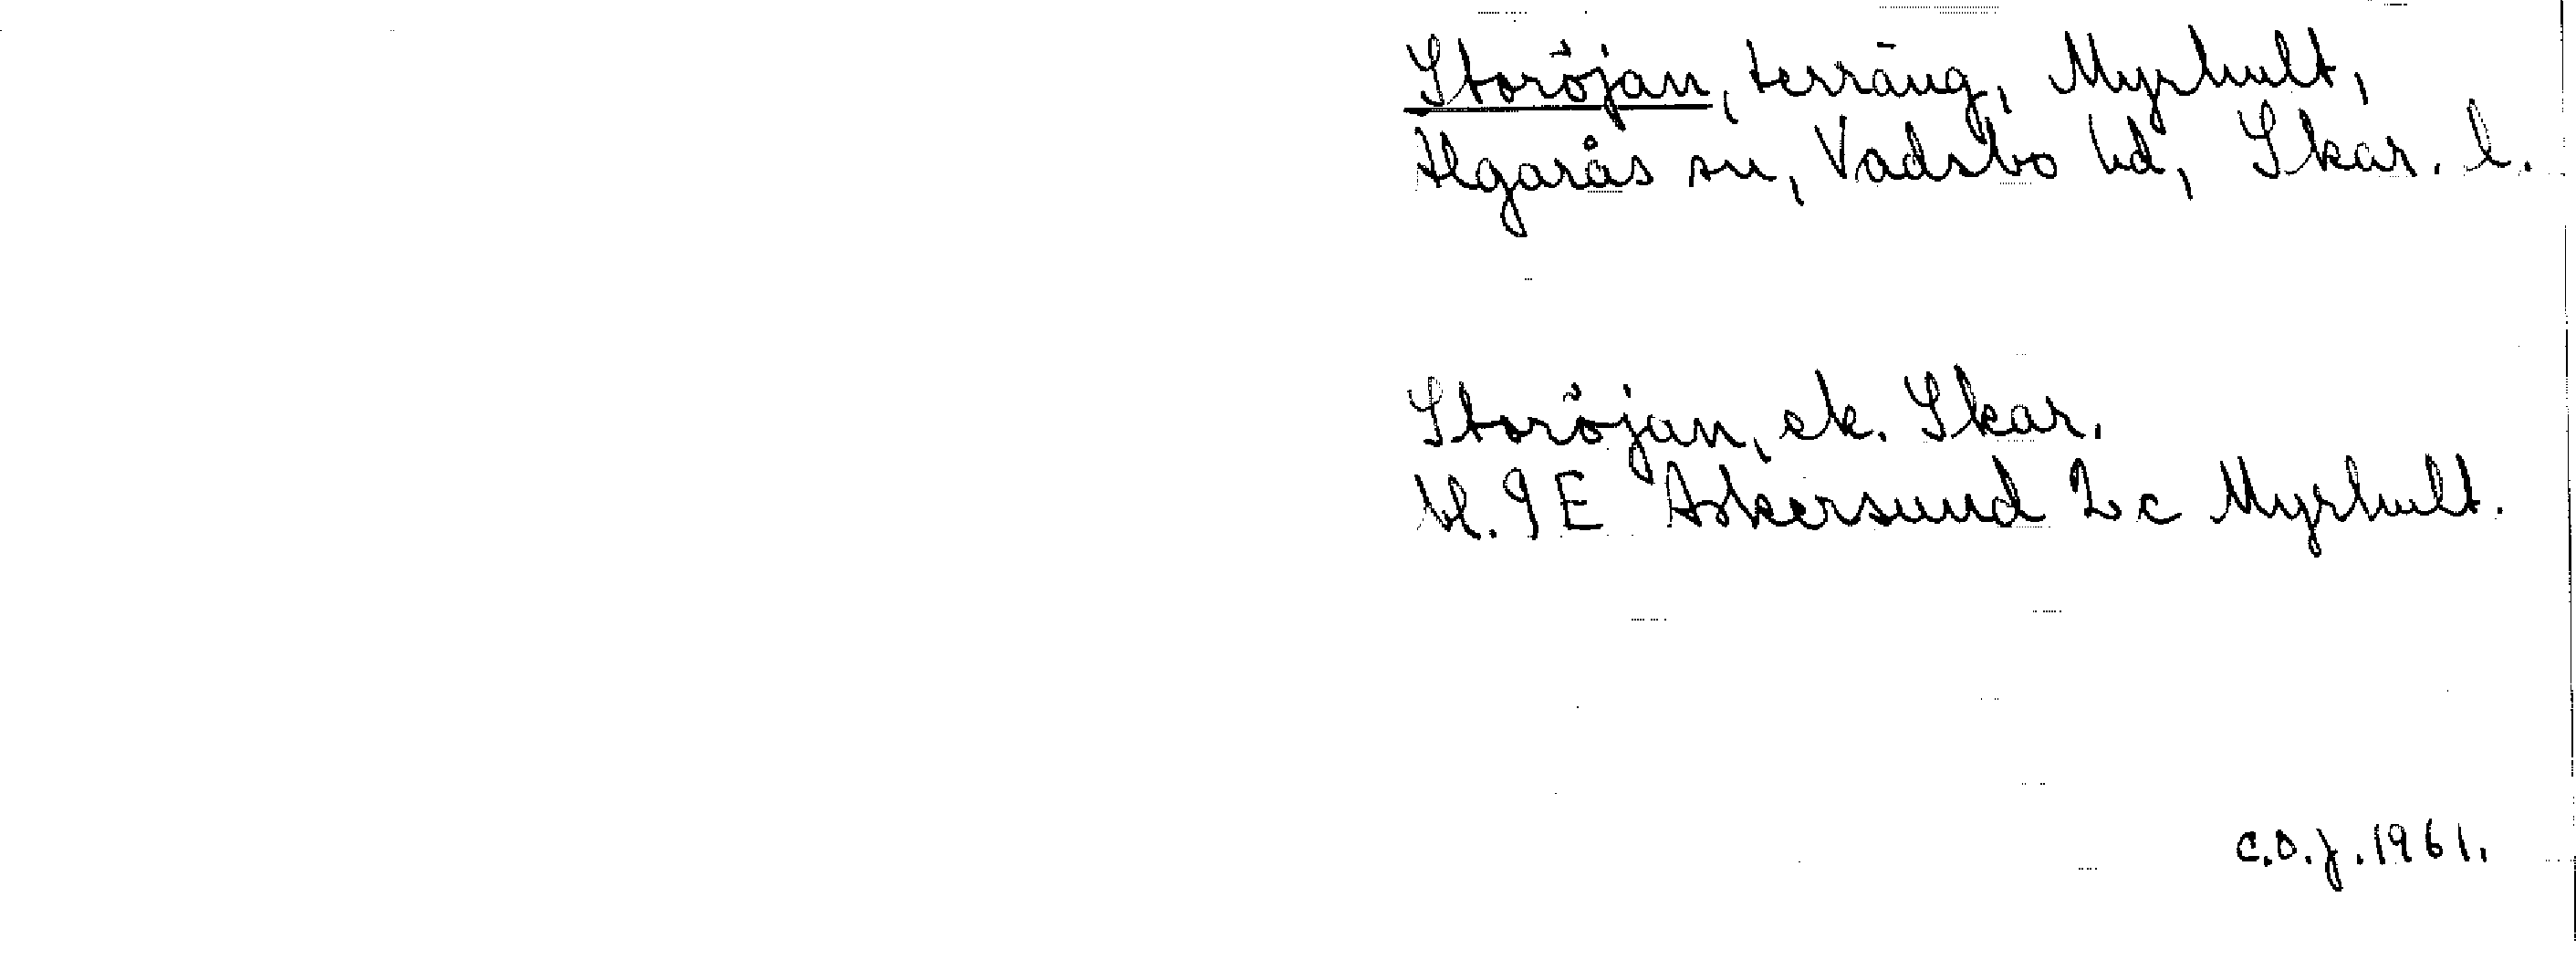 Storöjan, terräng, Myrhult,
Älgarås sn, Vadsbo hd, Skar. l.
Storöjan, ek. Skar.
bl. 9E Askersund 2 c Myrhult.
C.O.J. 1961.